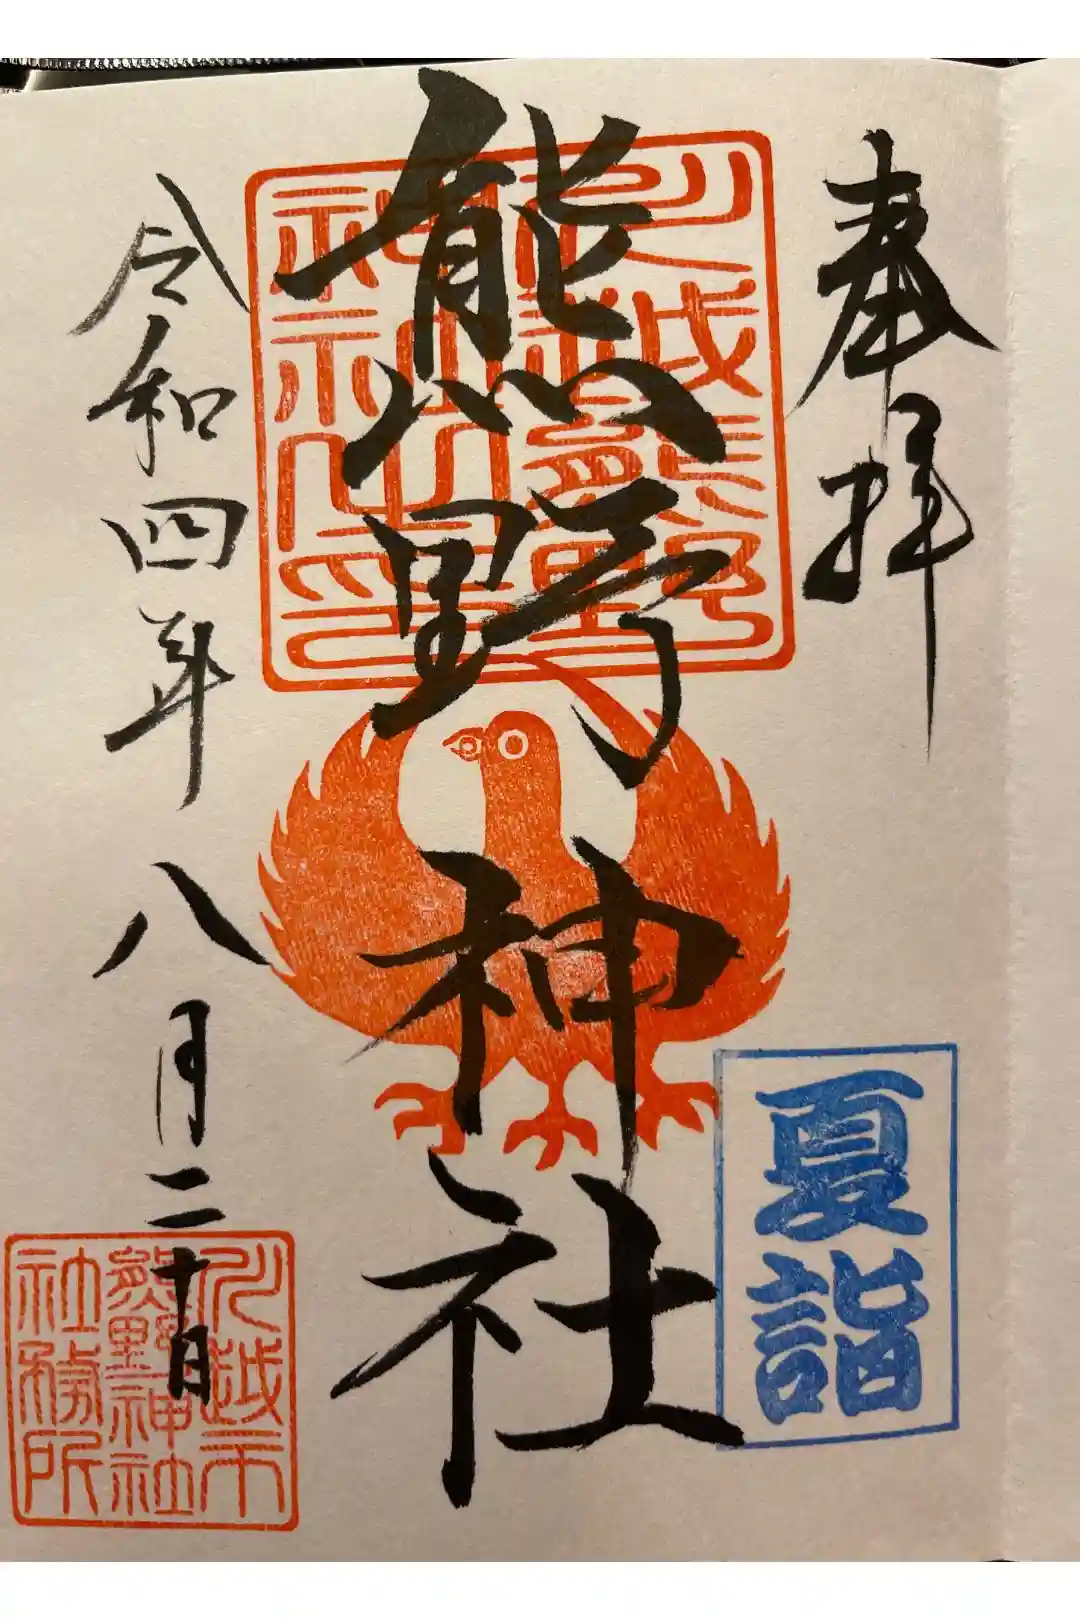 奉拝
川越熊野
神社之印
熊野神社
夏詣
令和四年八月二十日
川越市
熊野神社
社務所